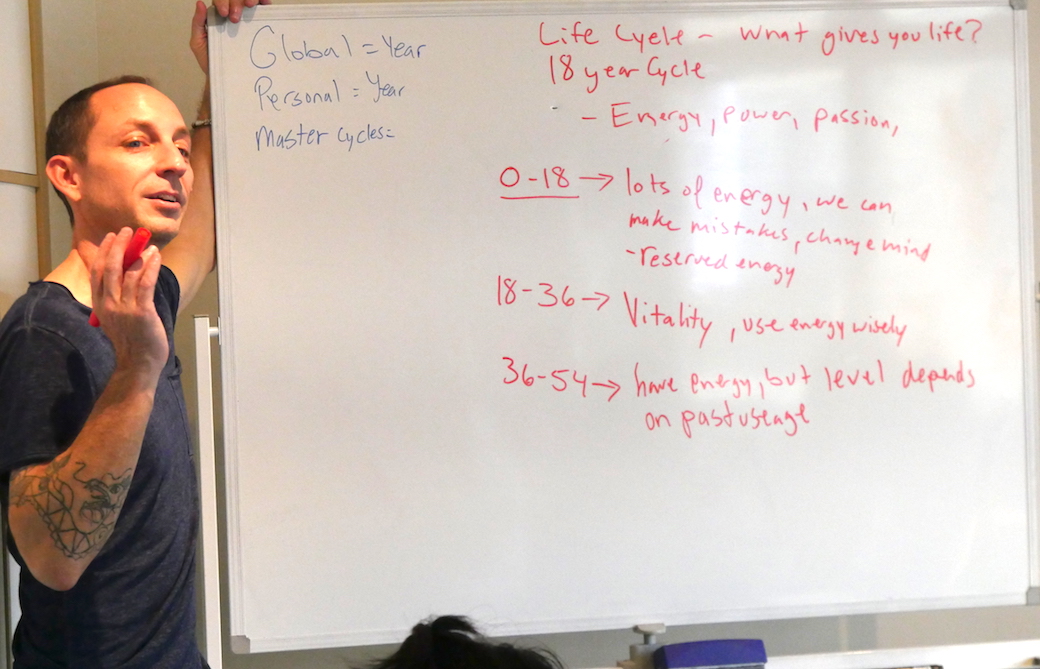 Global = Year
Personal = Year
Master cycles=
Life Cycle - What gives you life?
18 year Cycle
- Energy, power, passion,
0-18 → lots of energy, we can
make mistakes, change mind
-reserved energy
18-36 → Vitality, use energy wisely
36-54 → have energy, but level depends
on past useage